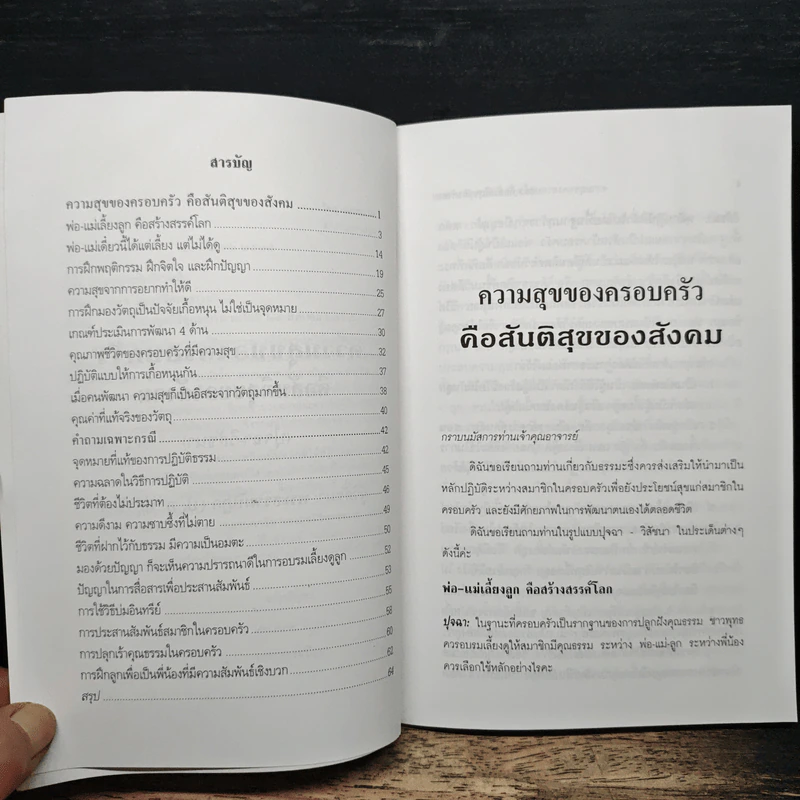 สารบัญ
ความสุขของครอบครัว คือสันติสุขของสังคม ........ 1
พ่อ-แม่เลี้ยงลูก คือสร้างสรรค์โลก ........ 3
พ่อ-แม่เดี๋ยวนี้ได้แต่เลี้ยง แต่ไม่ได้ดู ........ 14
การฝึกพฤติกรรม ฝึกจิตใจ และฝึกปัญญา ........ 19
ความสุขจากการอยากทำให้ดี ........ 25
การฝึกมองวัตถุเป็นปัจจัยเกื้อหนุน ไม่ใช่เป็นจุดหมาย ........ 27
เกณฑ์ประเมินการพัฒนา 4 ด้าน ........ 30
คุณภาพชีวิตของครอบครัวที่มีความสุข ........ 32
ปฏิบัติแบบให้การเกื้อหนุนกัน ........ 37
เมื่อคนพัฒนา ความสุขก็เป็นอิสระจากวัตถุมากขึ้น ........ 38
คุณค่าที่แท้จริงของวัตถุ ........ 40
คำถามเฉพาะกรณี ........ 42
จุดหมายที่แท้ของการปฏิบัติธรรม ........ 42
ความฉลาดในวิธีการปฏิบัติ ........ 45
ชีวิตที่ต้องไม่ประมาท ........ 46
ความดีงาม ความซาบซึ้งที่ไม่ตาย ........ 49
ชีวิตที่ฝากไว้กับธรรม มีความเป็นอมตะ ........ 50
มองด้วยปัญญา ก็จะเห็นความปรารถนาดีในการอบรมเลี้ยงดูลูก ........ 52
ปัญญาในการสื่อสารเพื่อประสานสัมพันธ์ ........ 53
การใช้วิธีบ่มอินทรีย์ ........ 55
การประสานสัมพันธ์สมาชิกในครอบครัว ........ 58
การปลุกเร้าคุณธรรมในครอบครัว ........ 60
การฝึกลูกเพื่อเป็นพี่น้องที่มีความสัมพันธ์เชิงบวก ........ 62
สรุป ........ 64
ความสุขของครอบครัว
คือสันติสุขของสังคม
กราบนมัสการท่านเจ้าคุณอาจารย์
ดิฉันขอเรียนถามท่านเกี่ยวกับธรรมะซึ่งควรส่งเสริมให้นำมาเป็น
หลักปฏิบัติระหว่างสมาชิกในครอบครัวเพื่อยังประโยชน์สุขแก่สมาชิกใน
ครอบครัว และยังมีศักยภาพในการพัฒนาตนเองได้ตลอดชีวิต
ดิฉันขอเรียนถามท่านในรูปแบบปุจฉา - วิสัชนา ในประเด็นต่างๆ
ดังนี้ค่ะ
พ่อ-แม่เลี้ยงลูก คือสร้างสรรค์โลก
ปุจฉา: ในฐานะที่ครอบครัวเป็นรากฐานของการปลูกฝังคุณธรรม ชาวพุทธ
ควรอบรมเลี้ยงดูให้สมาชิกมีคุณธรรม ระหว่าง พ่อ-แม่-ลูก ระหว่างพี่น้อง
ควรเลือกใช้หลักอย่างไรคะ